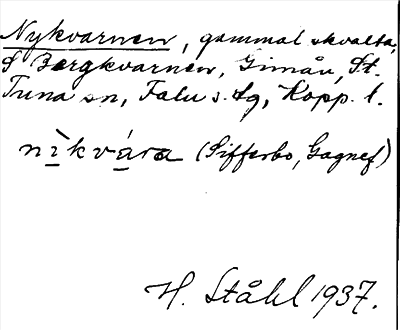 Nykvarnen, gammal skvalta,
S Bergkvarnen, Gimån, St.
Tuna sn, Falu s. dg, Kopp. l.
nìkvára (Sifferbo, Gagnef)
H. Ståhl 1937.